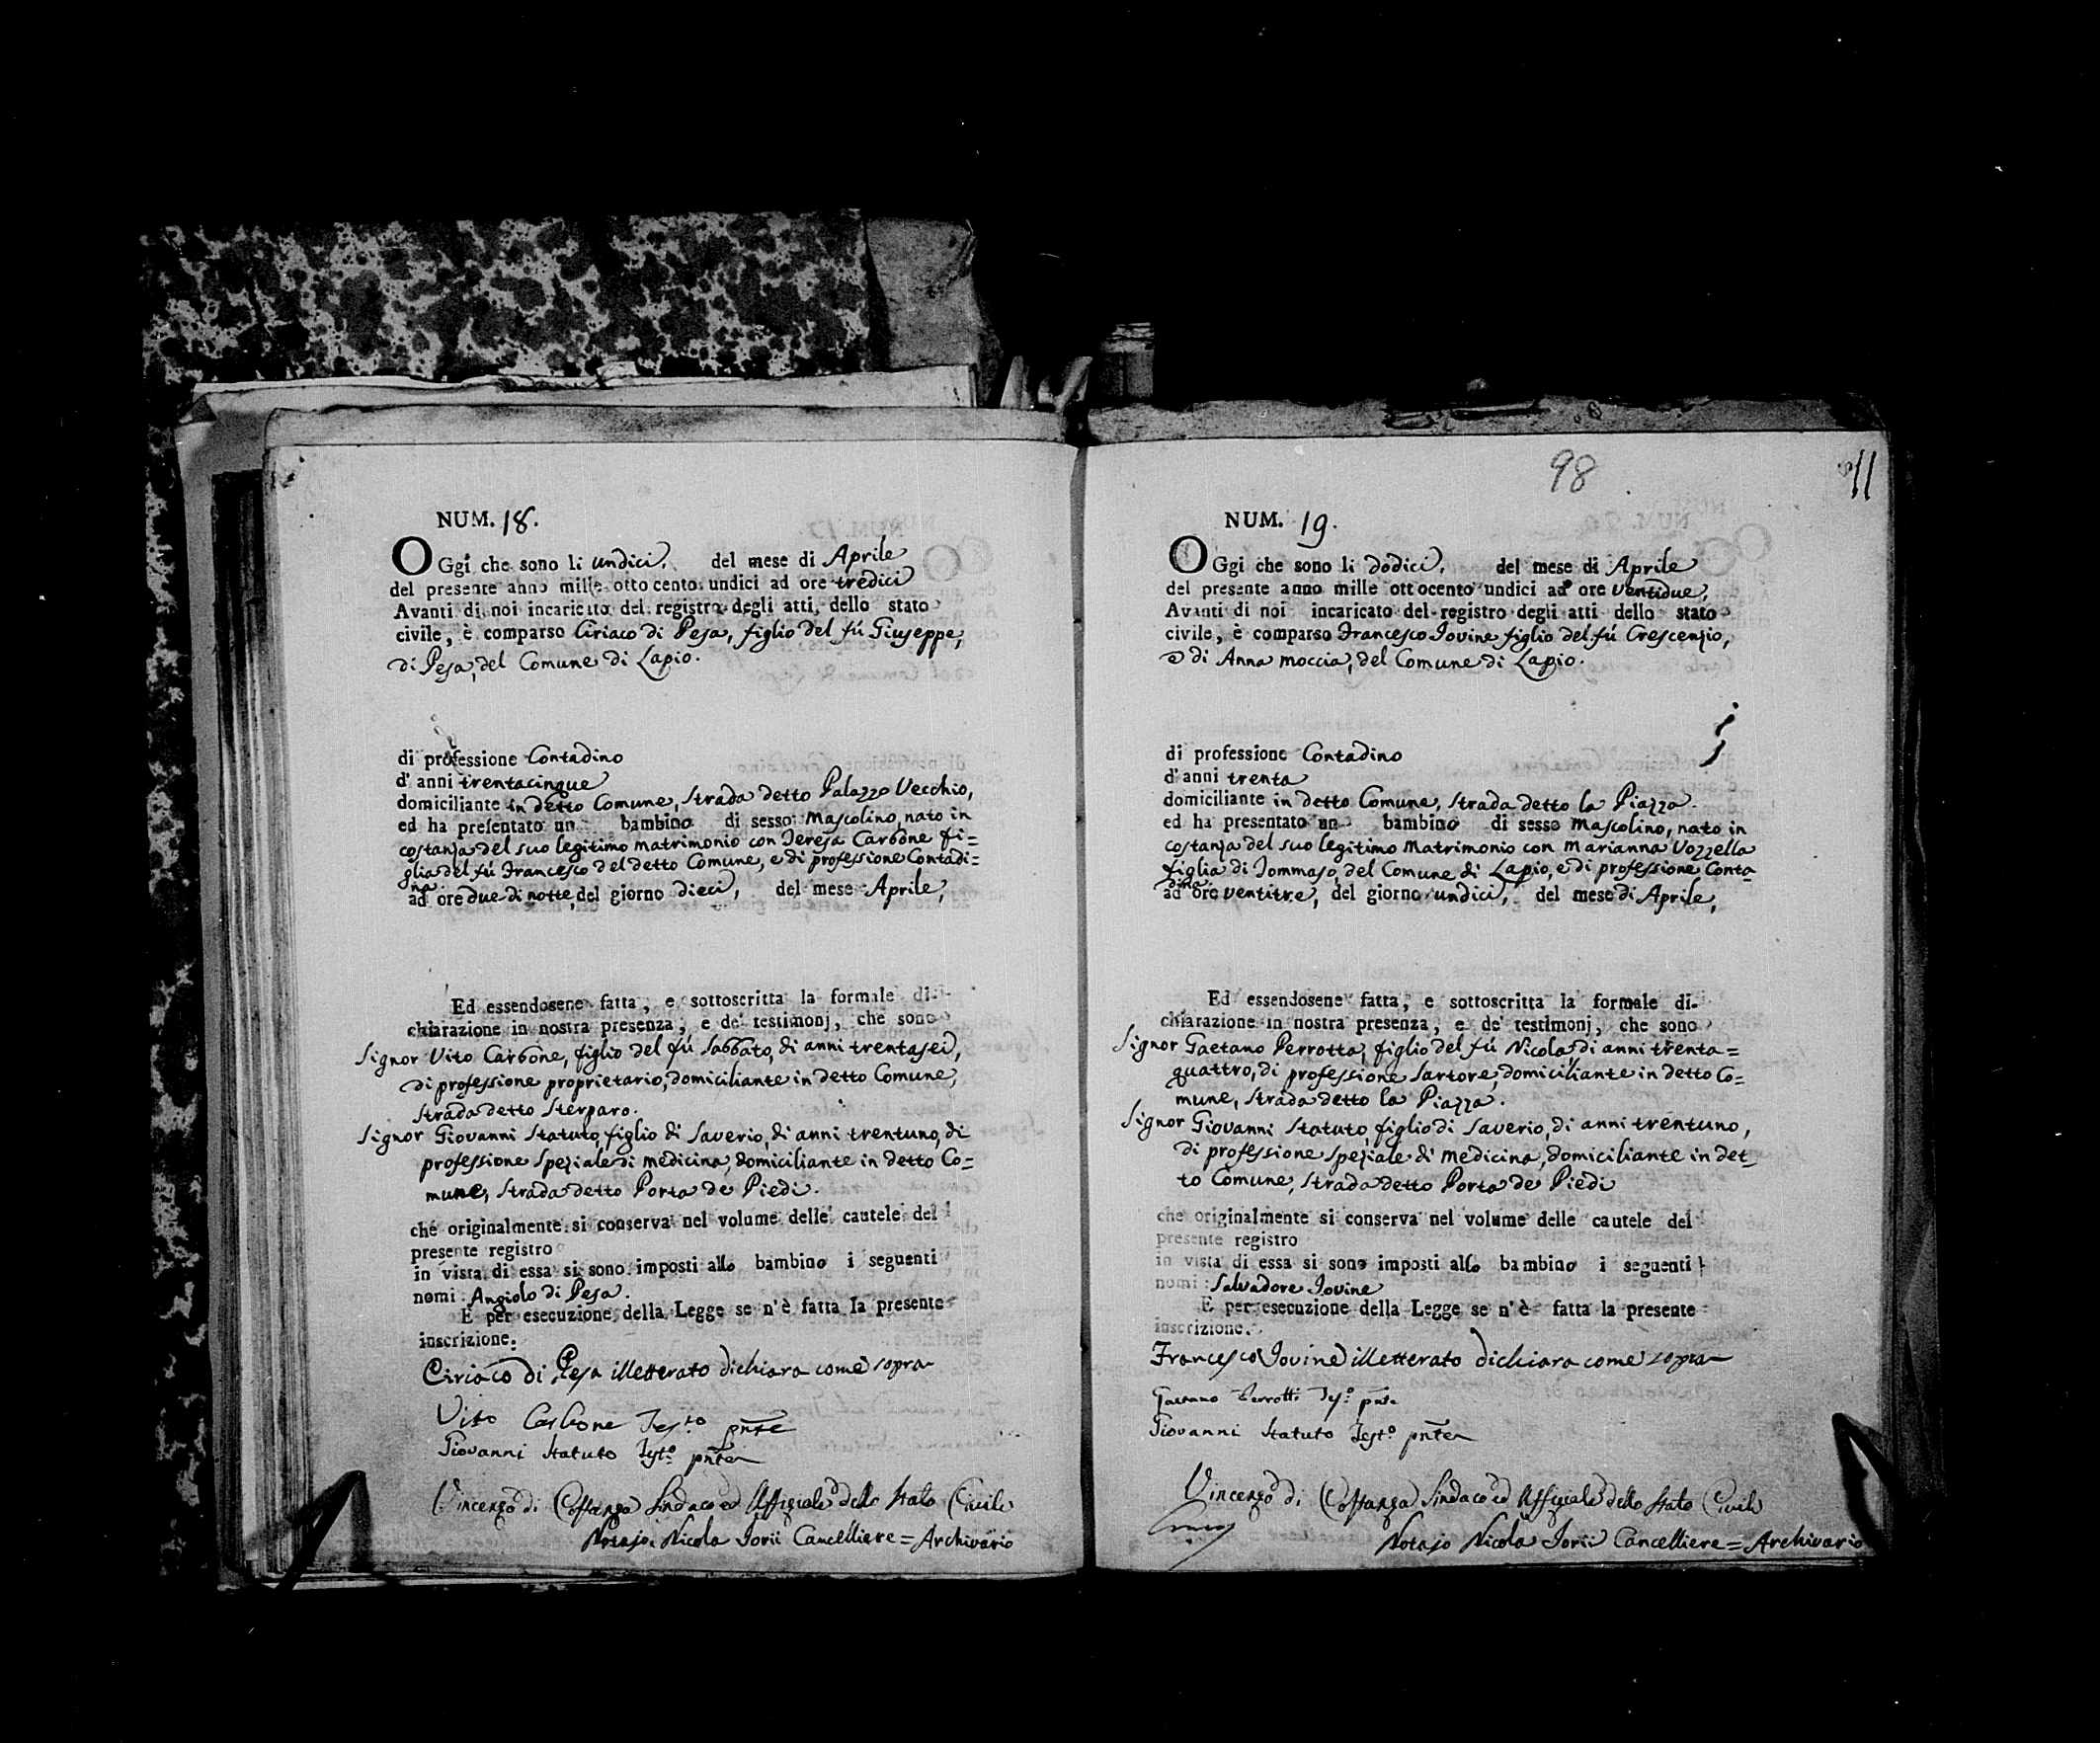 NUM. 18.
OGgi che sono li undici, del mese di Aprile
del presente anno mille otto cento undici ad ore tredici
Avanti di noi incaricato del registro degli atti dello stato
civile, è comparso Ciriaco di Pesa, figlio del fú Giuseppe,
di Pesa, del Comune di Lapio.
di professione Contadino
d'anni trentacinque
domiciliante in detto Comune, strada detto Palazzo Vecchio,
ed ha presentato un bambino di sesso Mascolino, nato in
costanza del suo legitimo matrimonio con Teresa Carbone fi=
glia del fú Francesco del detto Comune, e di professione Contadi=
na
ad ore due di notte, del giorno dieci, del mese Aprile,
Ed essendosene fatta, e sottoscritta la formale di-
chiarazione in nostra presenza, e de' testimonj, che sono
Signor Vito Carbone, figlio del fú Sabbato, di anni trentasei,
di professione proprietario, domiciliante in detto Comune,
strada detto Sterparo.
Signor Giovanni Statuto, figlio di Saverio, di anni trentuno, di
professione Speziale di medicina, domiciliante in detto Co=
mune, strada detto Porta de Piedi.
che originalmente si conserva nel volume delle cautele del
presente registro
in vista di essa si sono imposti allo bambino i seguenti
nomi Angiolo di Pesa.
E per esecuzione della Legge se n'è fatta la presente
inscrizione.
Ciriaco di Pesa illetterato dichiara come sopra
Vito Carbone Tes.to pñte
Giovanni Statuto Test.o pñte
Vincenzo di Costanza Sindaco ed Uffiziale dello Stato Civile
Notajo Nicola Iorii Cancelliere = Archivario
98
11
NUM. 19.
OGgi che sono li dodici, del mese di Aprile
del presente anno mille ottocento undici ad ore ventidue,
Avanti di noi incaricato del registro degli atti dello stato
civile, è comparso Francesco Iovine figlio del fú Crescenzio,
e di Anna Moccia, del Comune di Lapio.
di professione Contadino
d'anni trenta
domiciliante in detto Comune, strada detto la Piazza.
ed ha presentato un bambino di sesso Mascolino, nato in
costanza del suo legitimo Matrimonio con Marianna Vozzella
figlia di Tommaso, del Comune di Lapio, e di professione Conta-
dina
ad ore ventitre, del giorno undici, del mese di Aprile,
Ed essendosene fatta, e sottoscritta la formale di-
chiarazione in nostra presenza, e de' testimonj, che sono
Signor Gaetano Perrotta, figlio del fú Nicola di anni trenta=
quattro, di professione Sartore, domiciliante in detto Co=
mune, strada detto la Piazza.
Signor Giovanni Statuto, figlio di Saverio, di anni trentuno,
di professione Speziale di medicina, domiciliante in det=
to Comune, strada detto Porta de Piedi
che originalmente si conserva nel volume delle cautele del
presente registro
in vista di essa si sono imposti allo bambino i seguenti
nomi Salvadore Iovine
E per esecuzione della Legge se n'è fatta la presente
inscrizione.
Francesco Iovine illetterato dichiara come sopra
Gaetano Perrotti Tes.o pñte
Giovanni Statuto Test.o pñte
Vincenzo di Costanza Sindaco ed Uffiziale dello Stato Civile
Notajo Nicola Iorii Cancelliere = Archivario